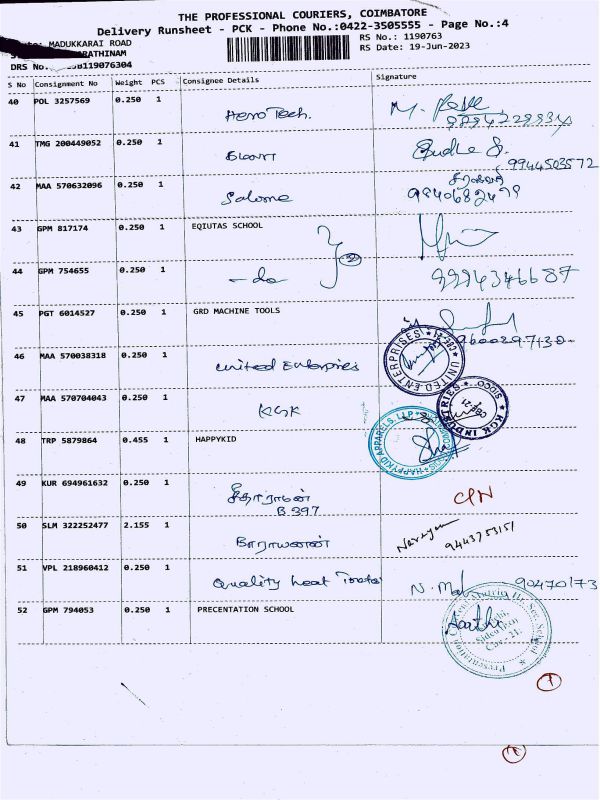 THE PROFESSIONAL COURIERS, COIMBATORE
Delivery Runsheet - PCK - Phone No.:0422-3505555 - Page No.:4
MADUKKARAI ROAD
RS No.: 1190763
RATHINAM
RS Date: 19-Jun-2023
DRS No. B119076304
S No Consignment No Weight PCS Consignee Details Signature
40 POL 3257569 0.250 1 Aero Tech.
41 TMG 200449052 0.250 1 Sudha S. 9944503572
42 MAA 570632096 0.250 1 Salome 9940682479
43 GPM 817174 0.250 1 EQIUTAS SCHOOL
44 GPM 754655 0.250 1 -do 9994346687
45 PGT 6014527 0.250 1 GRD MACHINE TOOLS 9600297130
46 MAA 570038318 0.250 1 United Enterpries UNITED ENTERPRISES
47 MAA 570704043 0.250 1 KGK KGK INDUSTRIES SIDCO
48 TRP 5879864 0.455 1 HAPPYKID HAPPYKID APPARELS LLP
49 KUR 694961632 0.250 1 சீதாராமன்
B 397
50 SLM 322252477 2.155 1 நாராயணன் Narayan 9443753151
51 VPL 218960412 0.250 1 Quality heat 90470173
52 GPM 794053 0.250 1 PRECENTATION SCHOOL Aarthi